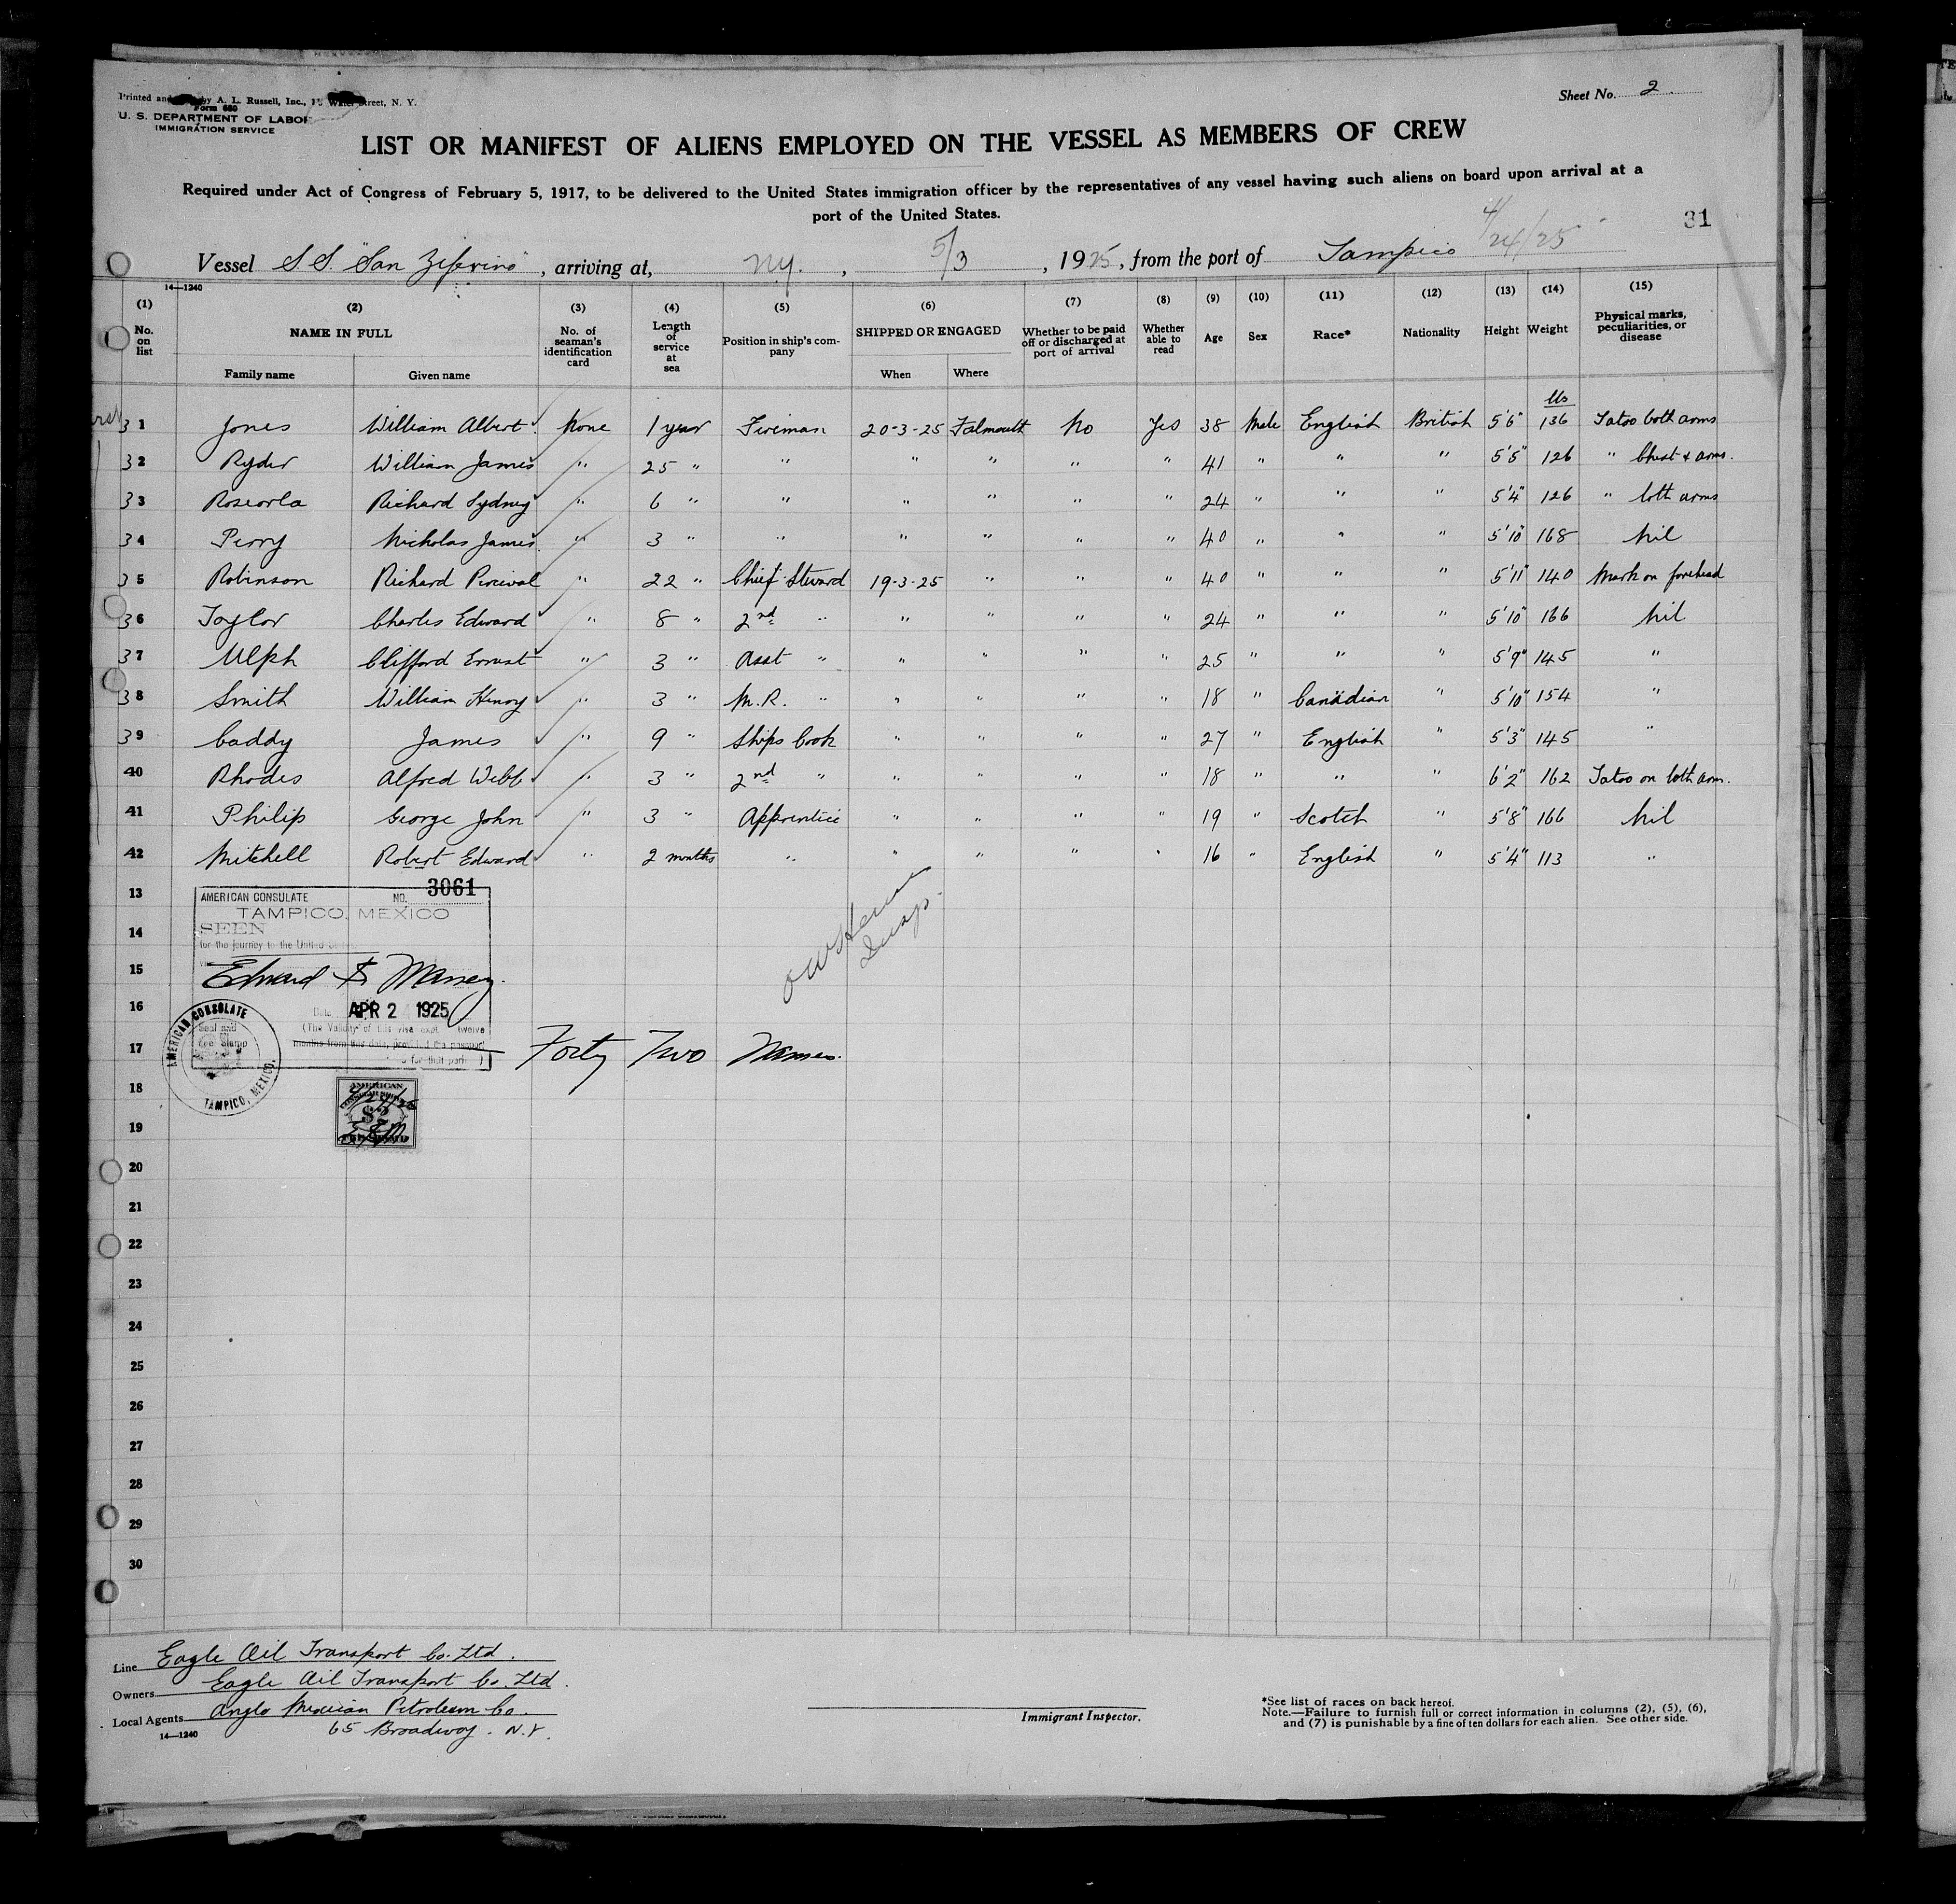 Printed and by A. L. Russell, Inc., Water Street, N. Y.
Form 680
U. S. DEPARTMENT OF LABOR
IMMIGRATION SERVICE
Sheet No. 2
LIST OR MANIFEST OF ALIENS EMPLOYED ON THE VESSEL AS MEMBERS OF CREW
Required under Act of Congress of February 5, 1917, to be delivered to the United States immigration officer by the representatives of any vessel having such aliens on board upon arrival at a
port of the United States.
31
4/24/25
Vessel S.S. "San Zeferino", arriving at, N.Y., 5/3, 1925, from the port of Tampico
14—1240
(1) (2) (3) (4) (5) (6) (7) (8) (9) (10) (11) (12) (13) (14) (15)
No. on list NAME IN FULL Family name Given name No. of seaman's identification card Length of service at sea Position in ship's company SHIPPED OR ENGAGED When Where Whether to be paid off or discharged at port of arrival Whether able to read Age Sex Race* Nationality Height Weight Physical marks, peculiarities, or disease
lbs
31 Jones William Albert None 1 year Fireman 20-3-25 Falmouth No Yes 38 Male English British 5'6" 136 Tatoo both arms
32 Ryder William James " 25 " " " " " " 41 " " " 5'5" 126 " Chest & arms.
33 Roseorla Richard Sydney " 6 " " " " " " 24 " " " 5'4" 126 " both arms
34 Perry Nicholas James " 3 " " " " " " 40 " " " 5'10" 168 Nil
35 Robinson Richard Percival " 22 " Chief Steward 19-3-25 " " " 40 " " " 5'11" 140 Mark on forehead
36 Taylor Charles Edward " 8 " 2nd " " " " " 24 " " " 5'10" 166 Nil
37 Ulph Clifford Ernest " 3 " Asst " " " " " 25 " " " 5'9" 145 "
38 Smith William Henry " 3 " M.R. " " " " " 18 " Canadian " 5'10" 154 "
39 Caddy James " 9 " Ships Cook " " " " 27 " English " 5'3" 145 "
40 Rhodes Alfred Webb " 3 " 2nd " " " " " 18 " " " 6'2" 162 Tatoo on both arms.
41 Philip George John " 3 " Apprentice " " " " 19 " Scotch " 5'8" 166 Nil
42 Mitchell Robert Edward " 2 months " " " " " 16 " English " 5'4" 113 "
13
14
15
16
17
18
19
20
21
22
23
24
25
26
27
28
29
30
AMERICAN CONSULATE NO. 3061
TAMPICO, MEXICO
SEEN
for the journey to the United States
Edward S. Massey.
Date APR 2 1925
(The Validity of this visa twelve
months from this date, provided the passport
for that )
Seal and
Fee Stamp
AMERICAN CONSULATE
TAMPICO, MEXICO.
AMERICAN
$2
Insp.
Forty Two Names.
Line Eagle Oil Transport Co. Ltd.
Owners Eagle Oil Transport Co. Ltd.
Local Agents Anglo Mexican Petroleum Co.
65 Broadway. N.Y.
14—1240
Immigrant Inspector.
*See list of races on back hereof.
Note.—Failure to furnish full or correct information in columns (2), (5), (6),
and (7) is punishable by a fine of ten dollars for each alien. See other side.